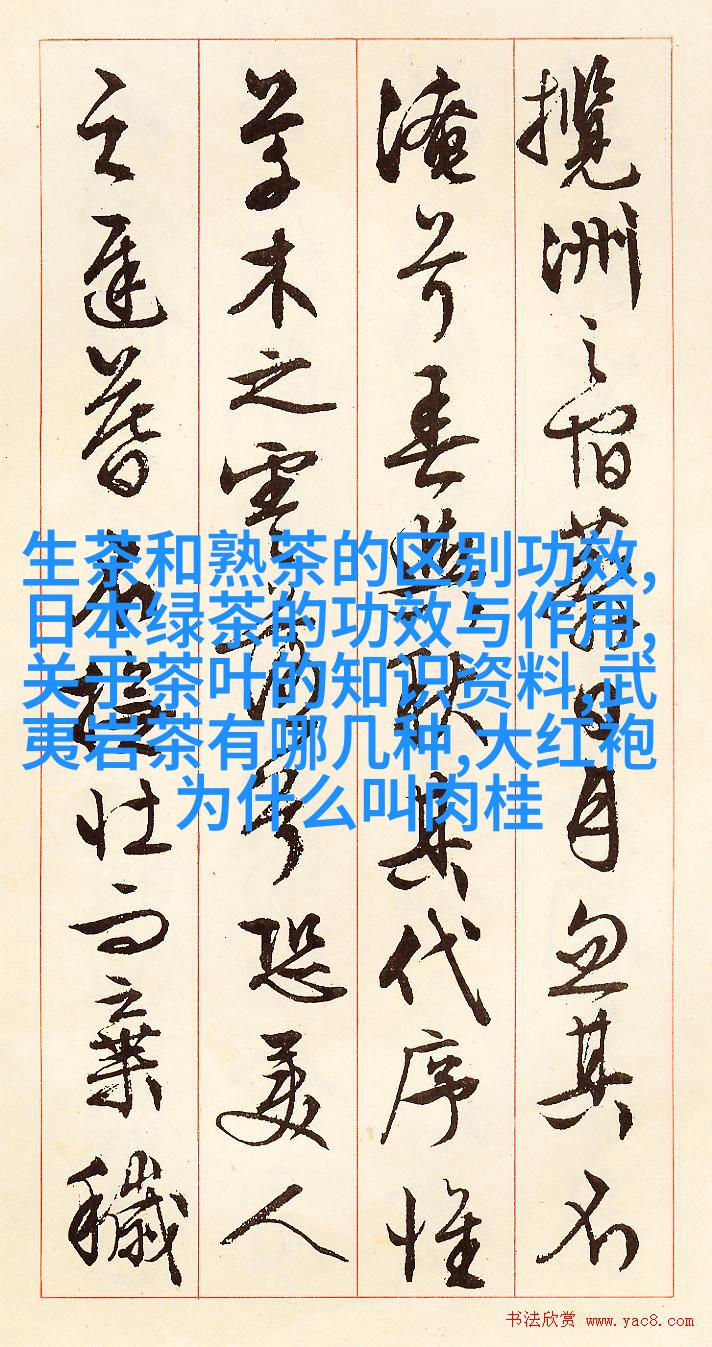 攬洲之宿莽日月忽其不
淹兮春與秋其代序惟
草木之零落兮恐美人
之遲暮不撫壯而棄穢
生茶和熟茶的区别功效,
日本绿茶的功效与作用,
关于茶叶的知识资料,武
夷岩茶有哪几种,大红袍
为什么叫肉桂
书法欣赏 www.yac8.com